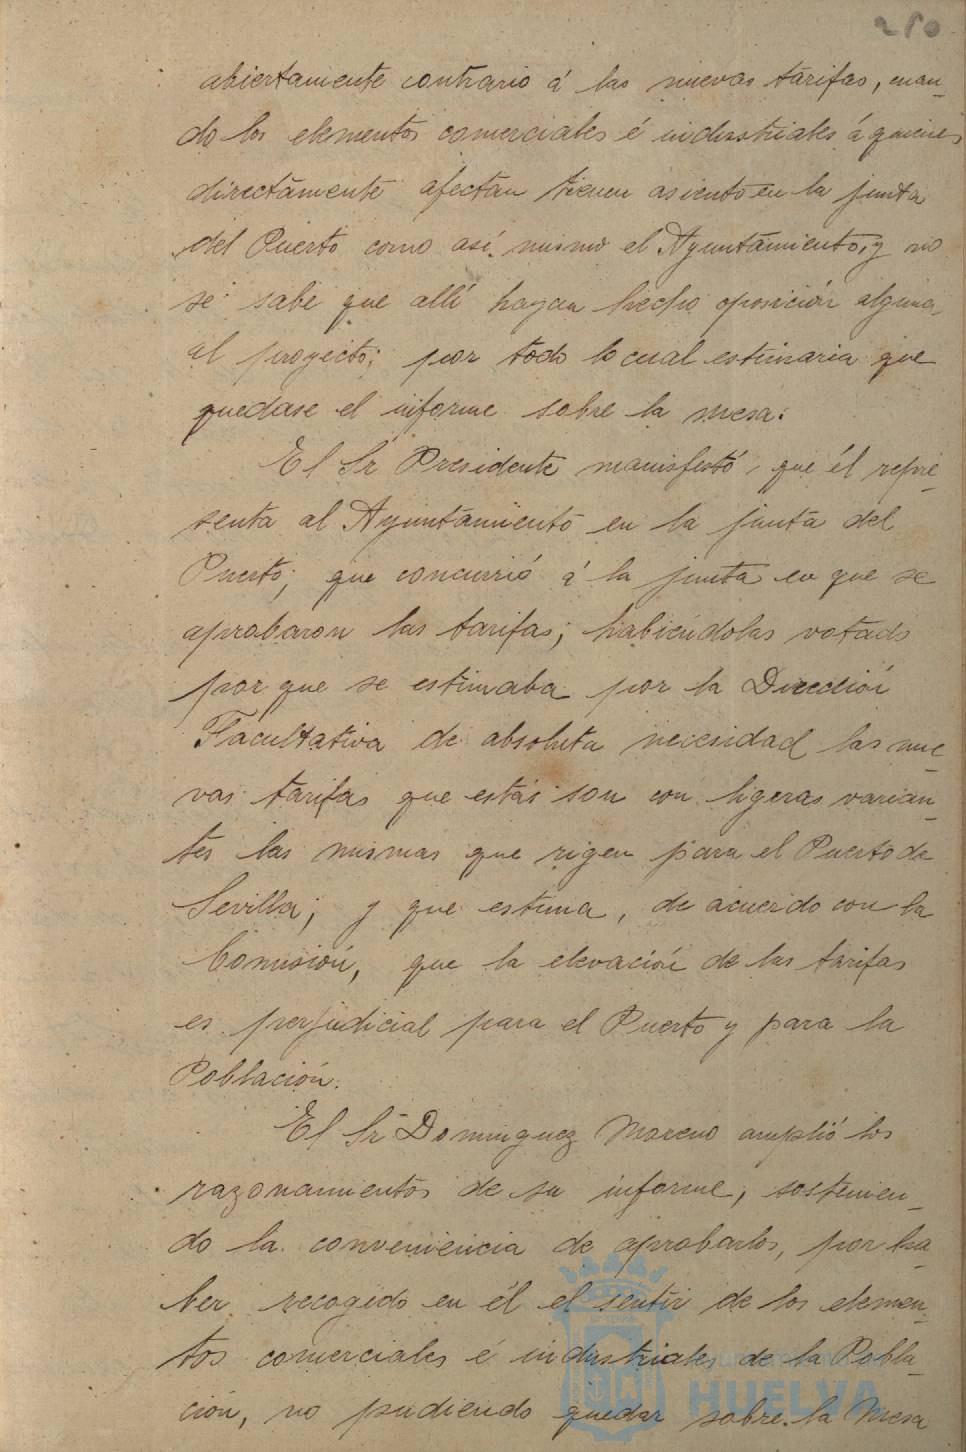 280
abiertamente contrario á las nuevas tarifas, cuan-
do los elementos comerciales é industriales á quienes
directamente afectan tienen asiento en la junta
del Puerto como así mismo el Ayuntamiento, y no
se sabe que allí hayan hecho oposición alguna
al proyecto; por todo lo cual estimaria que
quedase el informe sobre la mesa.
El Sr Presidente manisfestó, que él repre-
senta al Ayuntamiento en la junta del
Puerto; que concurrió á la junta en que se
aprobaron las tarifas; habiendolas votado
por que se estimaba por la Dirección
Facultativa de absoluta necesidad las nue-
vas tarifas que estas son con ligeras varian-
tes las mismas que rigen para el Puerto de
Sevilla; y que estima, de acuerdo con la
Comisión, que la elevación de las tarifas
es perjudicial para el Puerto y para la
Población.
El Sr Dominguez Moreno amplió los
razonamientos de su informe, sostenien-
do la conveniencia de aprobarlos, por ha-
ber recogido en él el sentir de los elemen-
tos comerciales é industriales de la Pobla-
ción, no pudiendo quedar sobre la Mesa
HUELVA